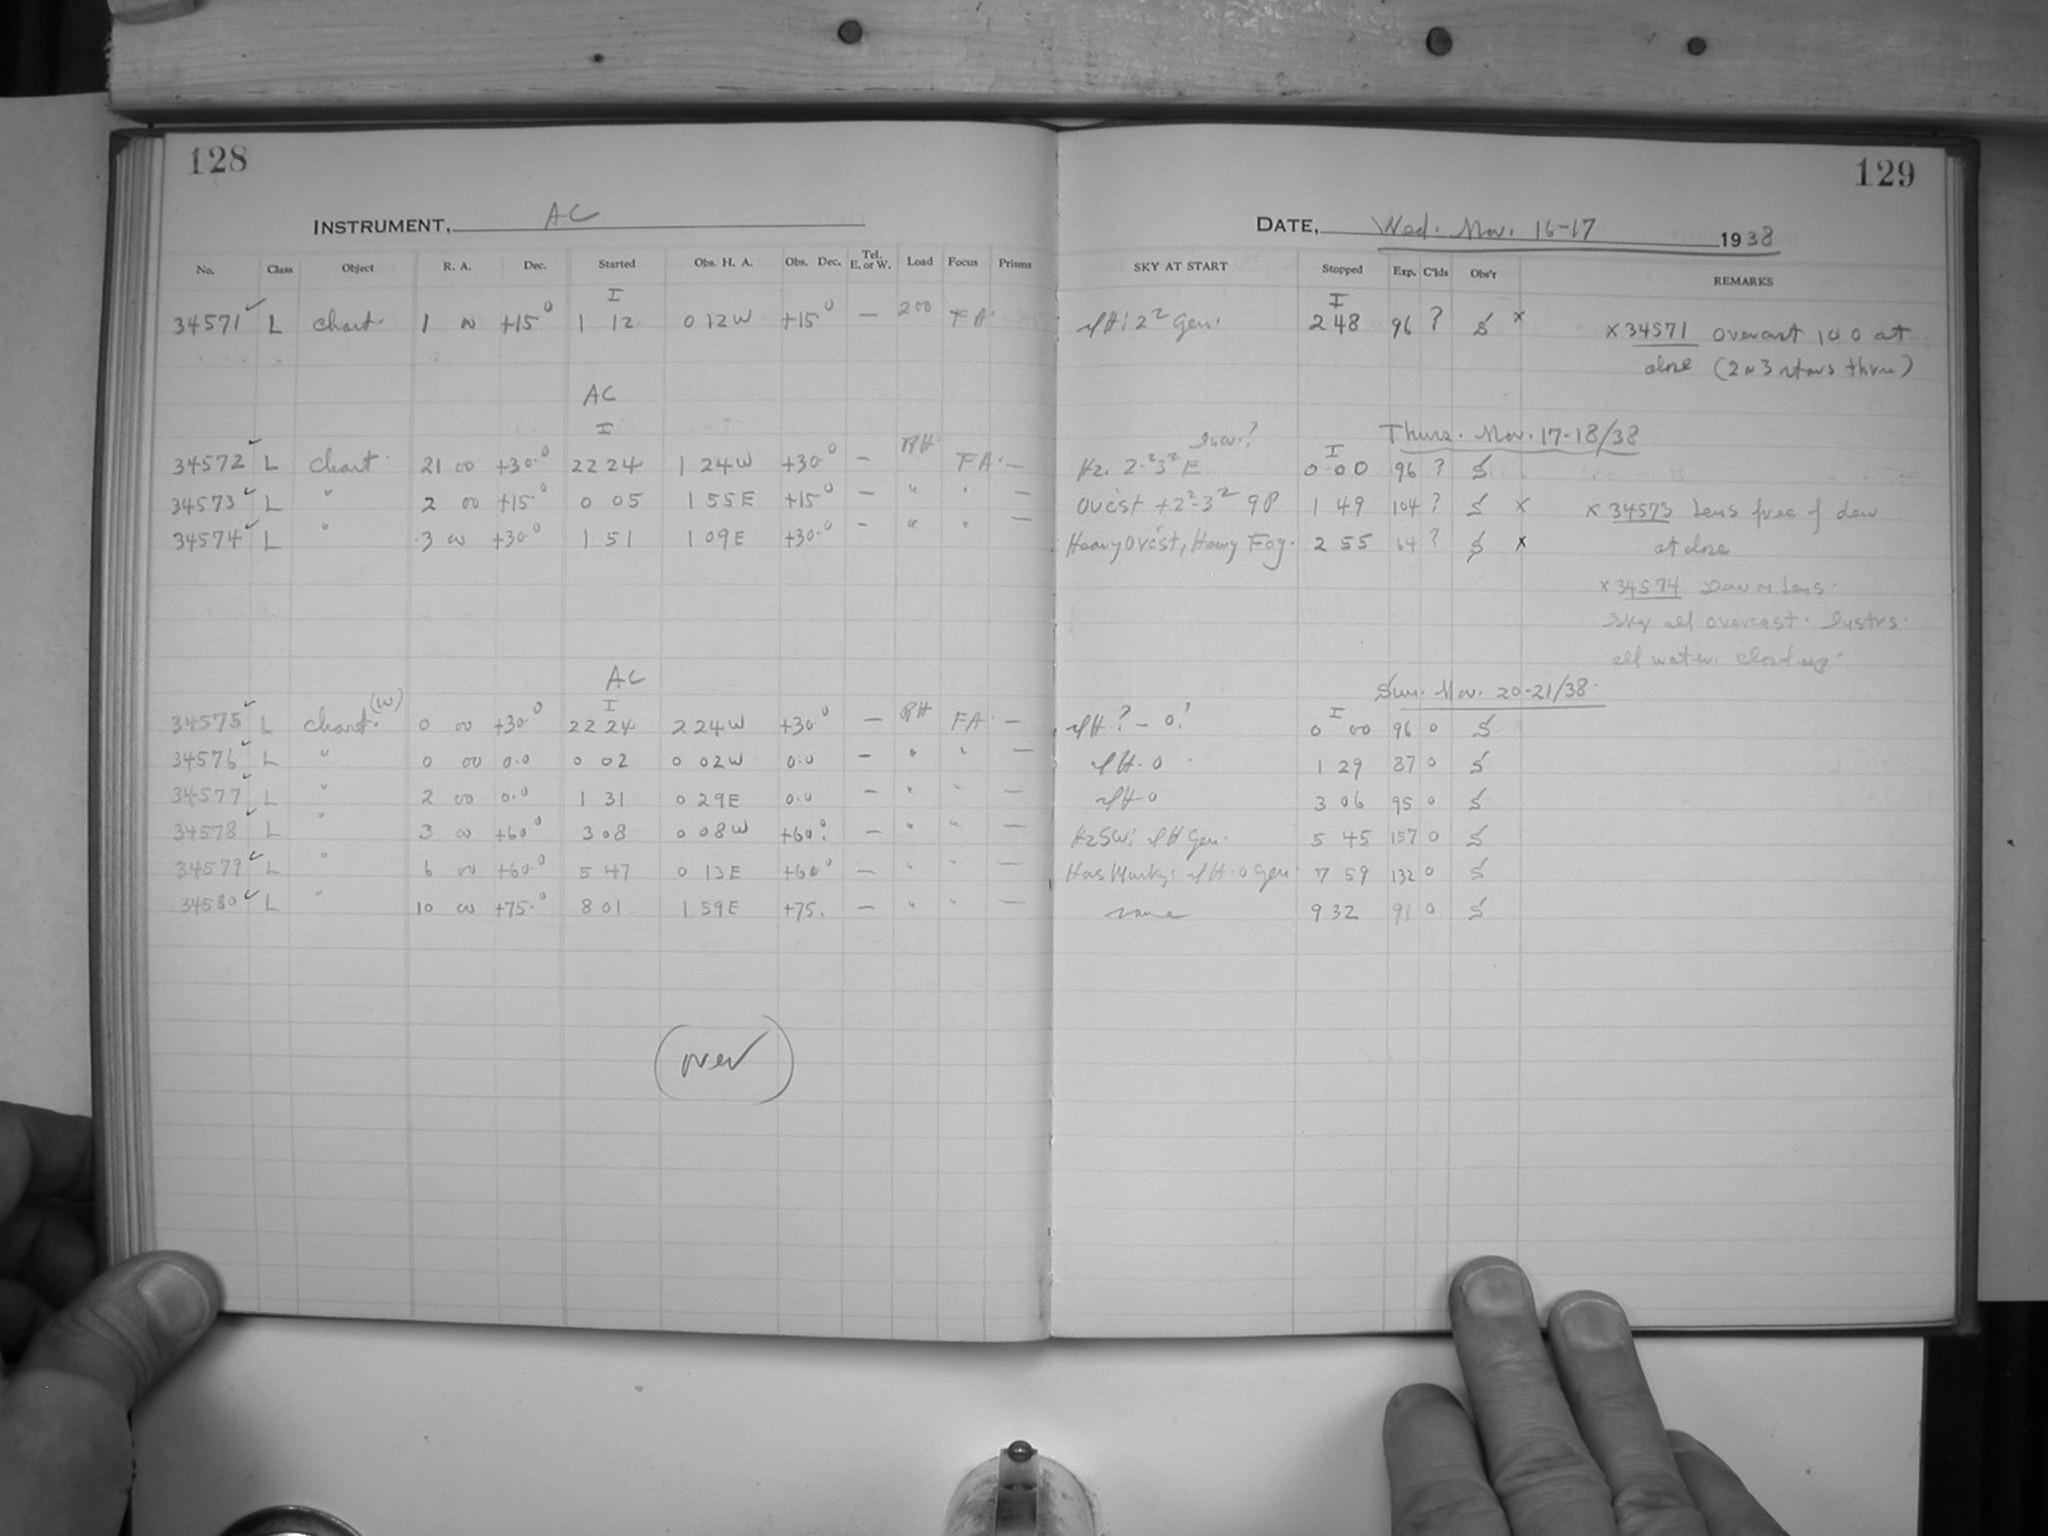 128
129
INSTRUMENT, AC
DATE, Wed. Nov. 16-17 1938
No. Class Object R. A. Dec. Started Obs. H. A. Obs. Dec. Tel. E. or W. Load Focus Prisms SKY AT START Stopped Exp. C'lds Obs'r REMARKS
I I
34571 ✓ L chart. 1 00 +15° 1 12 0 12 W +15° — 200 FA. 2² Gen. 2 48 96 ? S x x 34571 overcast 100 at
close (2 or 3 stars thru)
AC
I I Thurs. Nov. 17-18/38
34572 ✓ L chart. 21 00 +30.° 22 24 1 24 W +30.° — RH. FA. — Hz. 2.²3² E 0 00 96 ? S
34573 ✓ L " 2 00 +15.° 0 05 1 55 E +15° — " " — Ovc'st +2²-3² 9P 1 49 104 ? S x x 34573 Lens free of dew
34574 ✓ L " 3 00 +30.° 1 51 1 09 E +30.° — " " — Heavy Ovc'st, Heavy Fog. 2 55 64 ? S x at close
x 34574 Dew on Lens.
Sky all overcast.
all water. Closed up.
AC
I Sun. Nov. 20-21/38.
34575 ✓ L chart. (W) 0 00 +30° 22 24 2 24 W +30° — RH FA. — 0 00 96 0 S
34576 ✓ L " 0 00 0.0 0 02 0 02 W 0.0 — " " — 1 29 87 0 S
34577 ✓ L " 2 00 0.0 1 31 0 29 E 0.0 — " " — 3 06 95 0 S
34578 ✓ L " 3 00 +60° 3 08 0 08 W +60° — " " — Hz SW: Gen. 5 45 157 0 S
34579 ✓ L " 6 00 +60.° 5 47 0 13 E +60° — " " — Has Murky: Gen. 7 59 132 0 S
34580 ✓ L " 10 00 +75.° 8 01 1 59 E +75. — " " — same 9 32 91 0 S
(over)